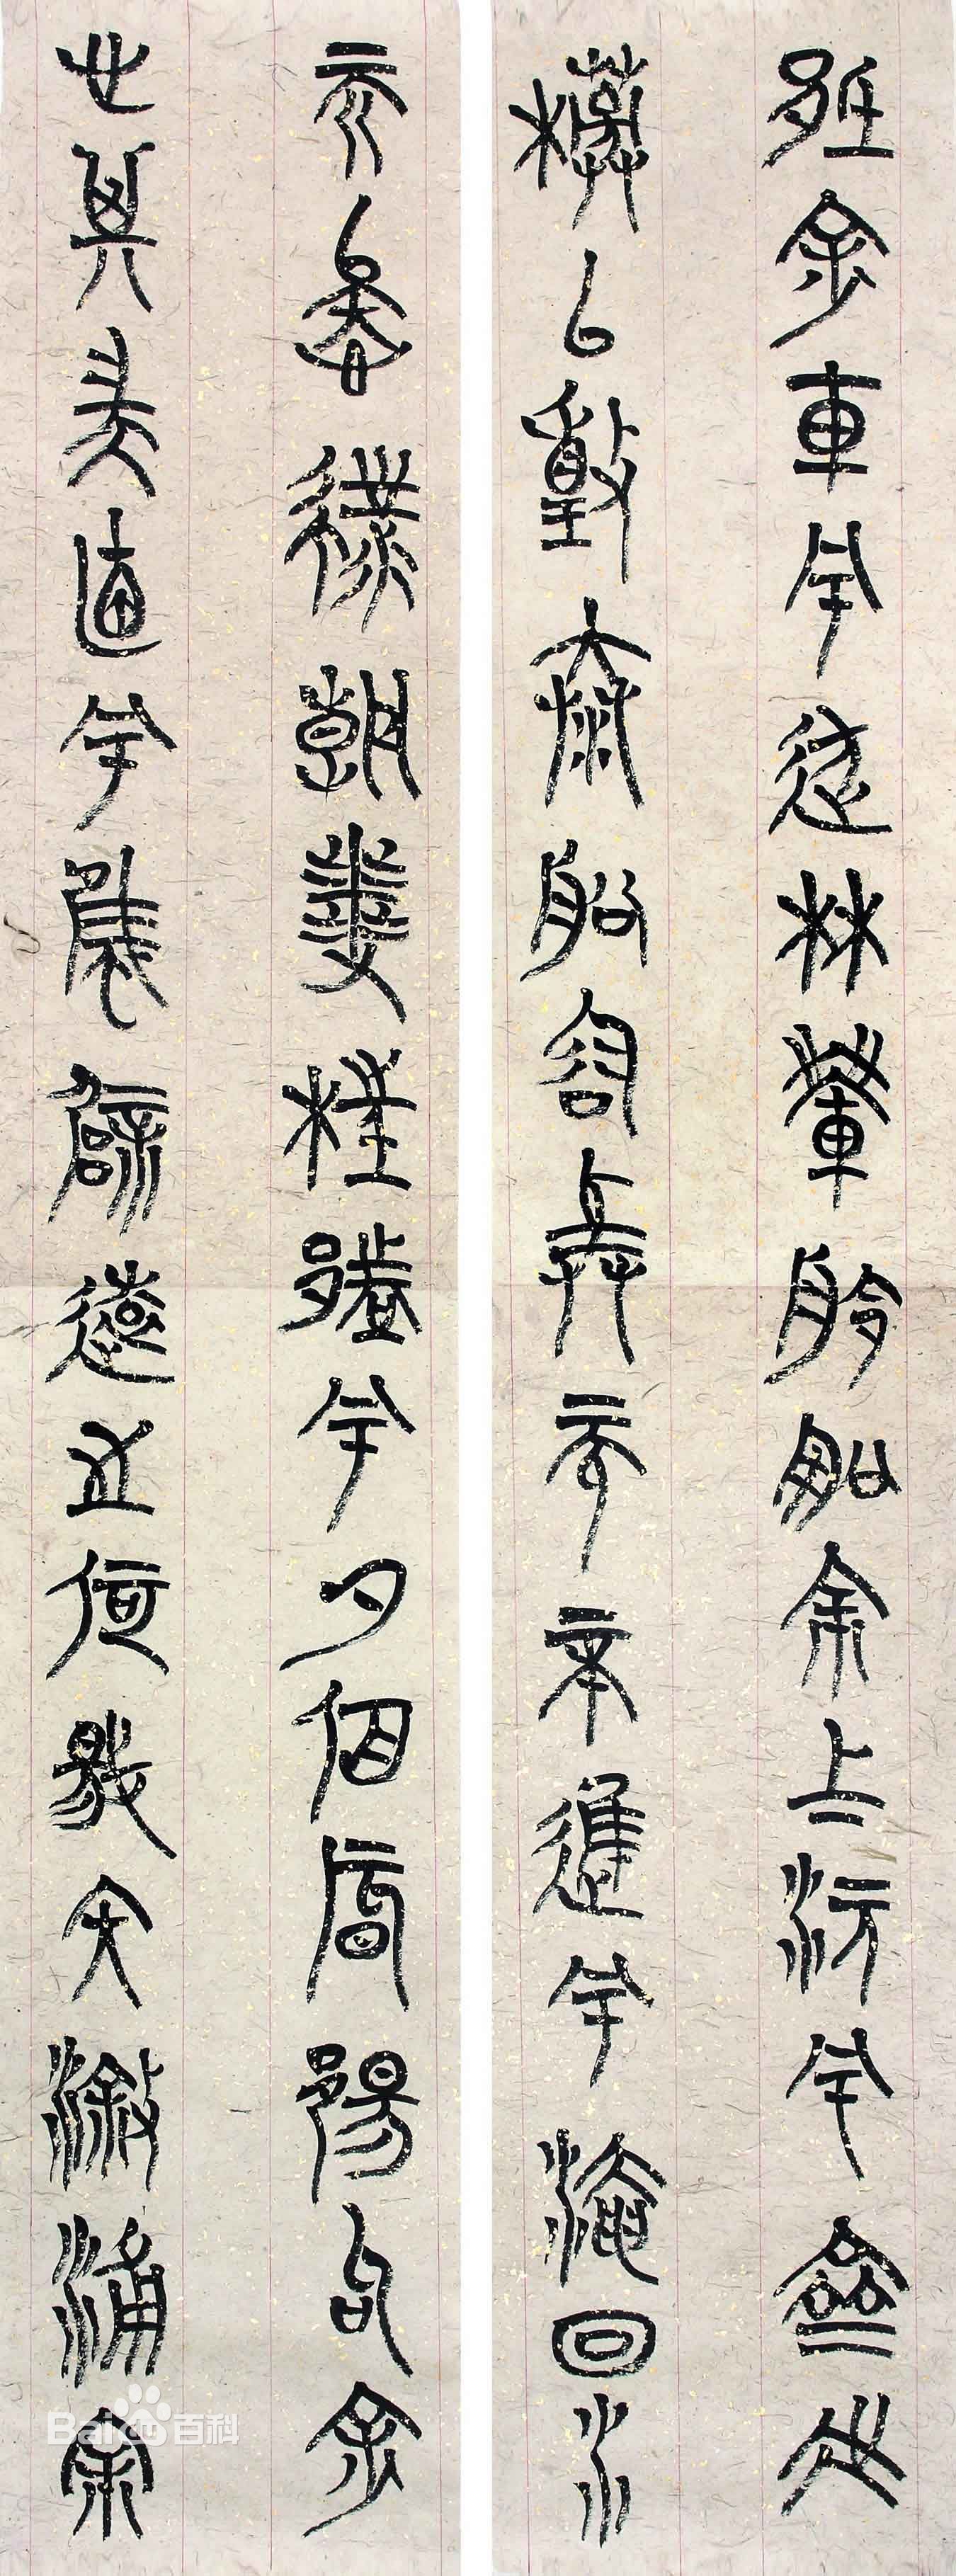 邸余車兮方林乘舲船余上沅兮齊吳
榜以擊汰船容與而不進兮淹回水
而疑滯朝發枉陼兮夕宿辰陽苟余
心其端直兮雖僻遠之何傷入漵浦余
Baidu百科